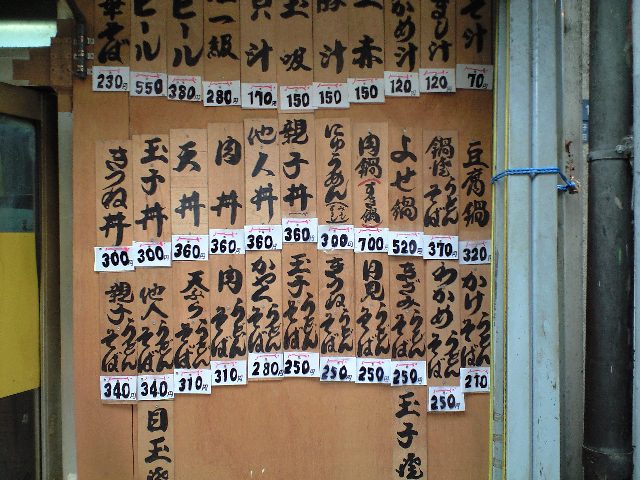 そ汁
70円
まし汁
120円
かめ汁
120円
赤
150円
豚汁
150円
玉吸
150円
貝汁
170円
一級
280円
ビール
380円
ビール
550円
華そば
230円
豆腐鍋
320円
鍋焼うどんそば
370円
よせ鍋
520円
肉鍋(すき鍋)
700円
にゅうめん
300円
親子丼
360円
他人丼
360円
肉丼
360円
天丼
360円
玉子丼
300円
きつね丼
300円
かけうどんそば
210円
わかめうどんそば
250円
きざみうどんそば
250円
月見うどんそば
250円
きつねうどんそば
250円
玉子うどんそば
250円
かやくうどんそば
280円
肉うどんそば
310円
天ぷらうどんそば
310円
他人うどんそば
340円
親子うどんそば
340円
玉子焼
目玉焼